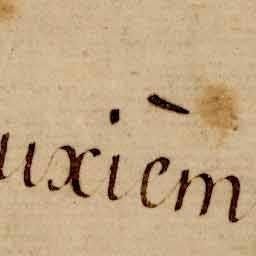 uxièm